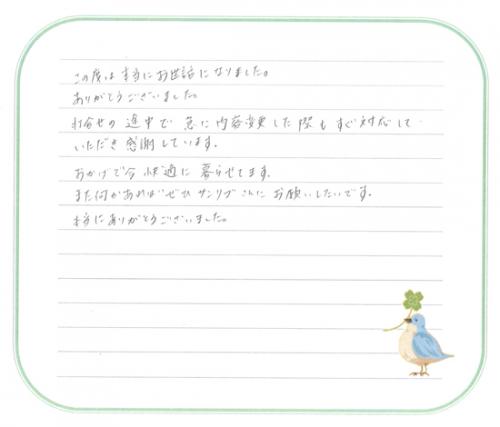 この度は本当にお世話になりました。
ありがとうございました。
打合せの途中で急に内容変更した際もすぐ対応して
いただき感謝しています。
おかげで今快適に暮らせてます。
また何かあればぜひサンリブさんにお願いしたいです。
本当にありがとうございました。